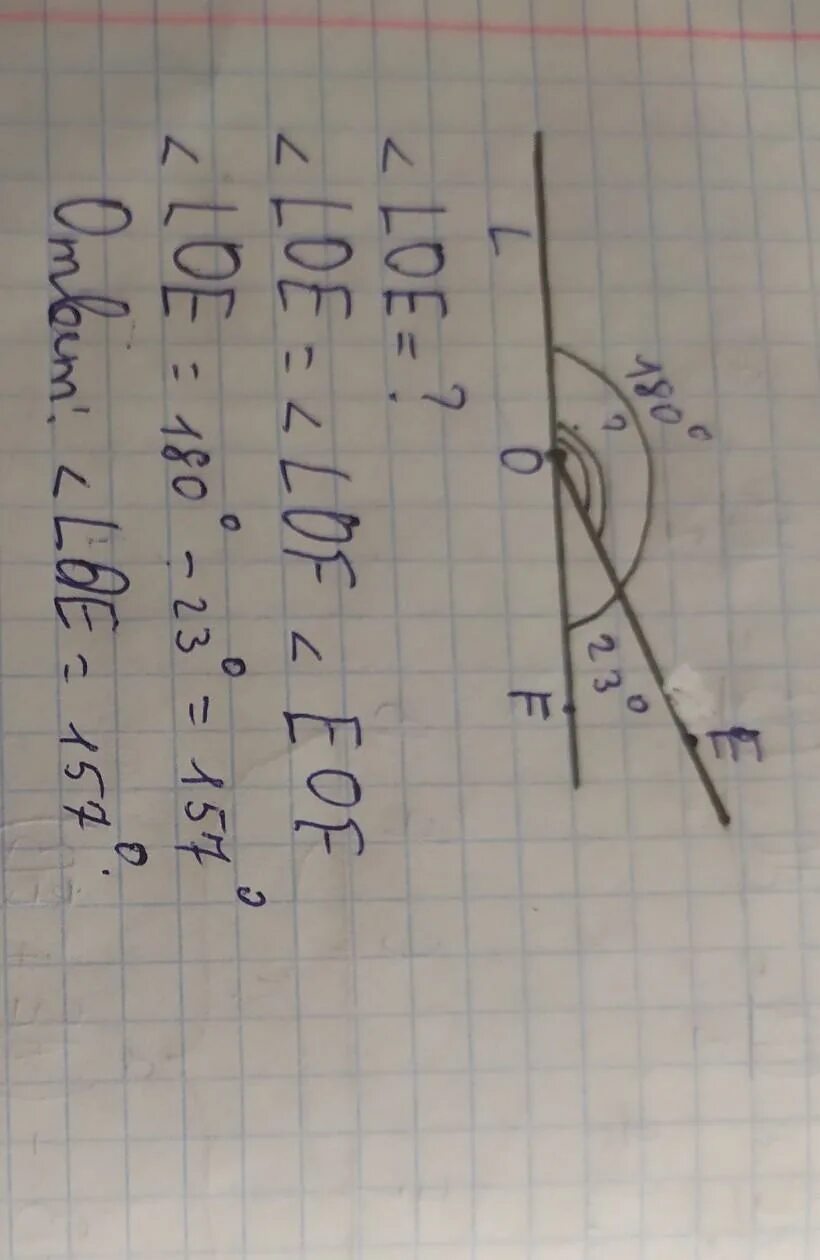 180°
?
23°
E
L
O
F
< LOE = ?
< LOE = < LOF < EOF
< LOE = 180° - 23° = 157°
Ответ: < LOE = 157°.